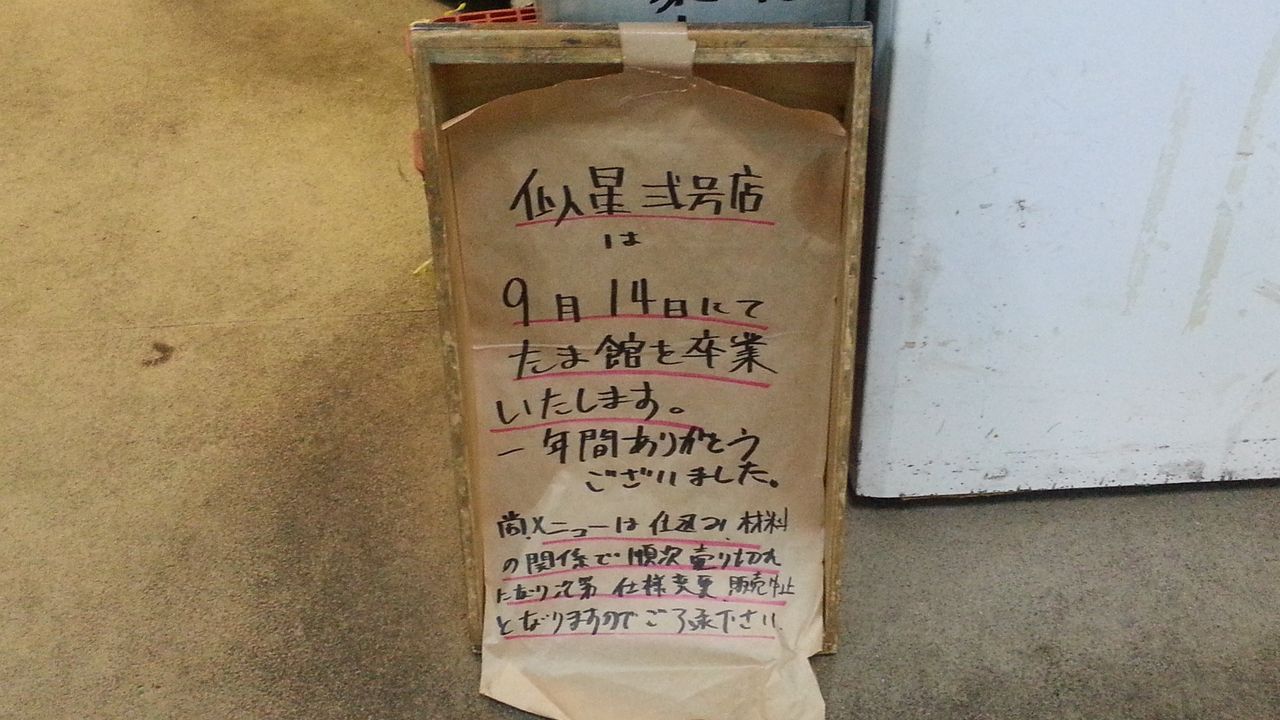 似星 弐号店
は
9月14日にて
たま館を卒業
いたします。
一年間ありがとう
ございました。
尚メニューは仕込み 材料
の関係で順次 売り切れ
になり次第 仕様変更 販売中止
となりますのでご了承下さい